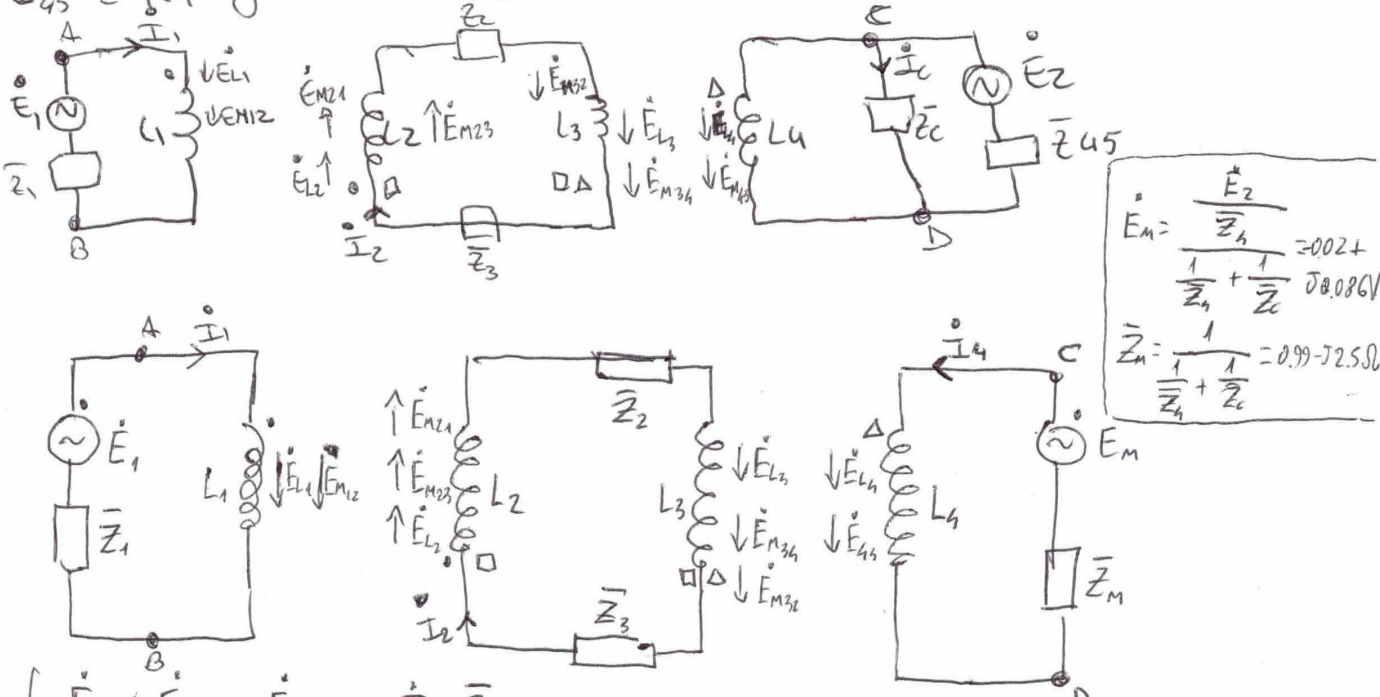 A
İ₁
Ė₁
Z̄₁
B
L₁
↓ĖL1
↓EM12
Z₂
ĖM21
ĖL2
L₂
ĖM23
İ₂
Z̄₃
↓ĖM32
L₃
↓ĖL3
↓ĖM34
L4
C
İc
Z̄c
Ė2
Z̄45
D
Ėm = (Ė₂/Z̄₄)/(1/Z̄₄ + 1/Z̄c) = 0.02 + J0.086V
Z̄m = 1/(1/Z̄₄ + 1/Z̄c) = 0.99-J2.5Ω
A
İ₁
Ė₁
Z̄₁
B
L₁
ĖL1
ĖM12
ĖM21
ĖM23
ĖL2
L₂
İ₂
Z̄₂
Z̄₃
L₃
↓ĖL3
↓ĖM34
↓ĖM32
↓ĖL4
↓Ė43
L₄
İ₄
C
Ėm
Z̄m